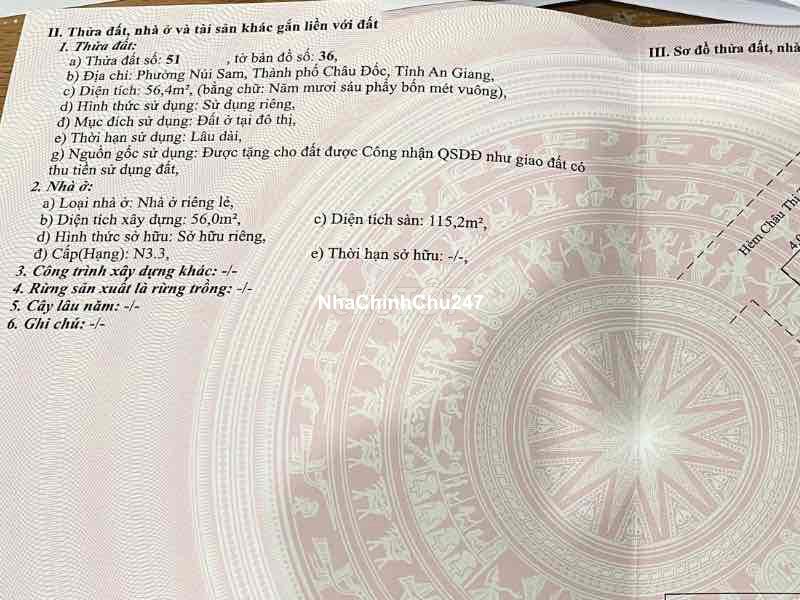 II. Thửa đất, nhà ở và tài sản khác gắn liền với đất
1. Thửa đất:
a) Thửa đất số: 51 , tờ bản đồ số: 36,
b) Địa chỉ: Phường Núi Sam, Thành phố Châu Đốc, Tỉnh An Giang,
c) Diện tích: 56,4m², (bằng chữ: Năm mươi sáu phẩy bốn mét vuông),
d) Hình thức sử dụng: Sử dụng riêng,
đ) Mục đích sử dụng: Đất ở tại đô thị,
e) Thời hạn sử dụng: Lâu dài,
g) Nguồn gốc sử dụng: Được tặng cho đất được Công nhận QSDĐ như giao đất có
thu tiền sử dụng đất,
2. Nhà ở:
a) Loại nhà ở: Nhà ở riêng lẻ,
b) Diện tích xây dựng: 56,0m², c) Diện tích sàn: 115,2m²,
d) Hình thức sở hữu: Sở hữu riêng,
đ) Cấp(Hạng): N3.3, e) Thời hạn sở hữu: -/-,
3. Công trình xây dựng khác: -/-
4. Rừng sản xuất là rừng trồng: -/-
5. Cây lâu năm: -/-
6. Ghi chú: -/-
NhaChinhChu247
III. Sơ đồ thửa đất, nhà
Hẻm Châu Thị